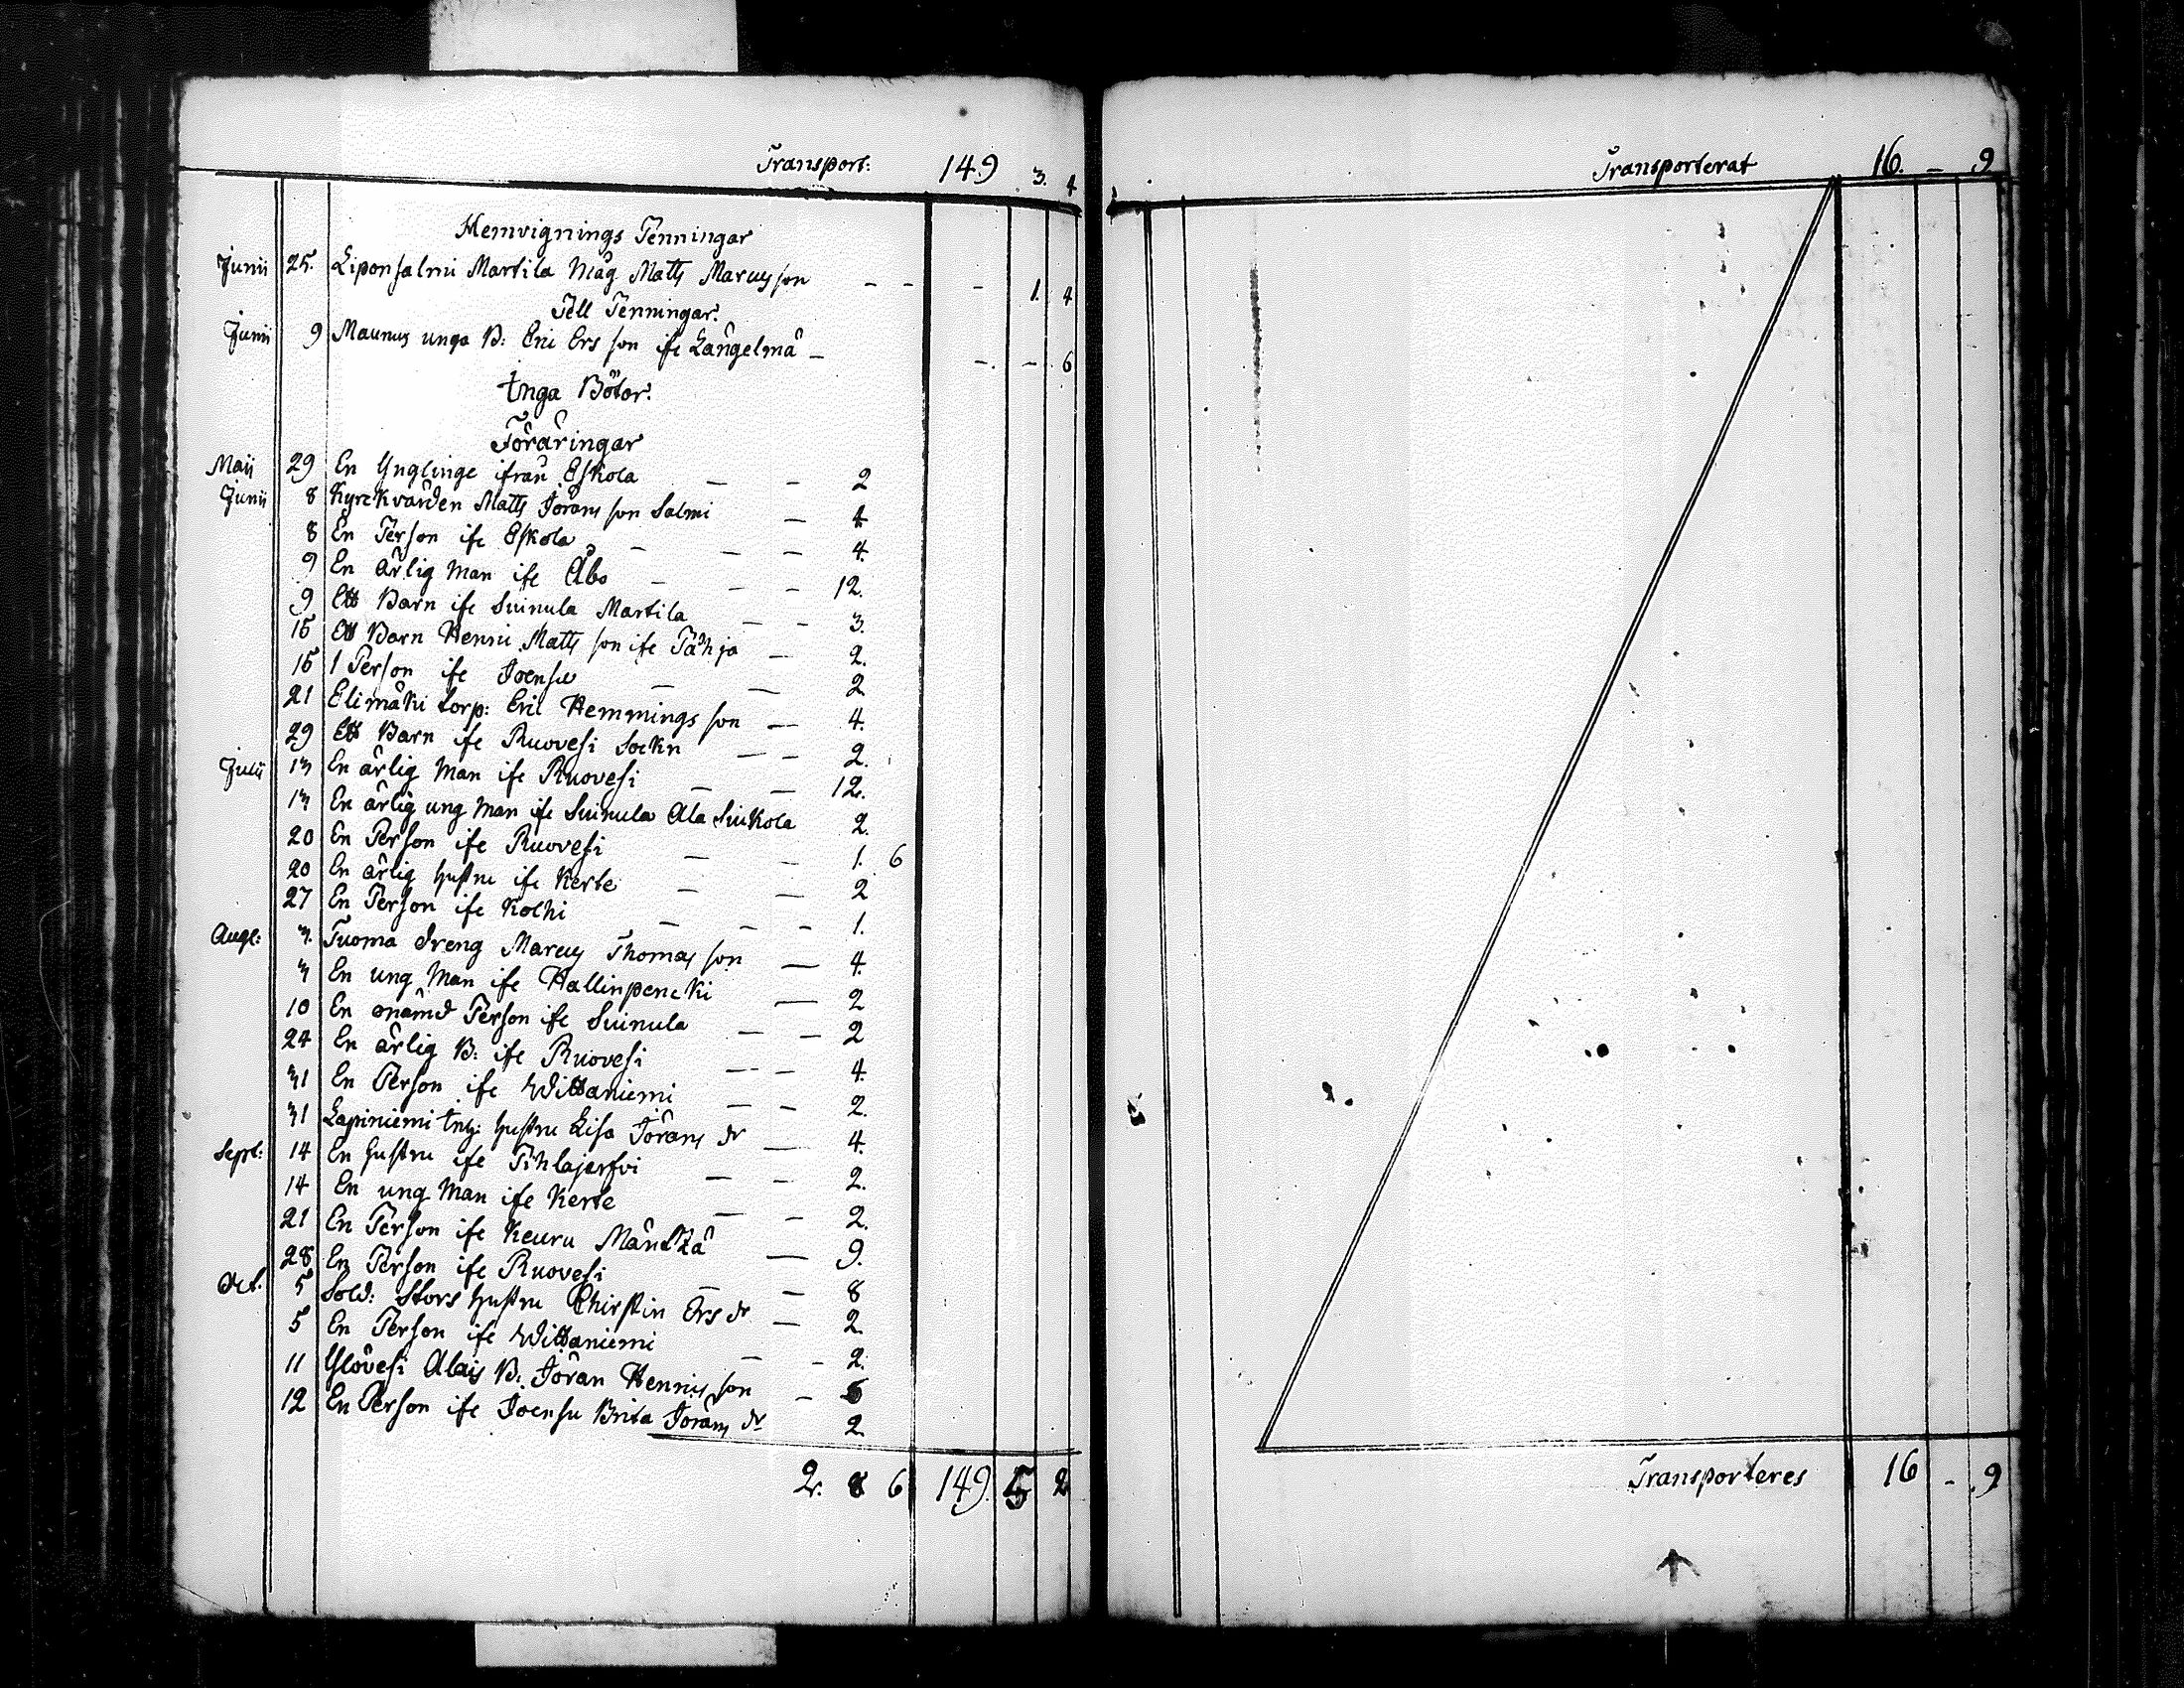 Transport: 149 3. 4
Hemvignings Penningar
Junii 25. Liponsalmi Martila Måg Matts Marcusson - - - 1. 4
Tell Penningar.
Junii 9 Maunus unga B: Eric Ersson ifr Längelmä - - - 6
Inga Böter.
Föräringar
Maij 29 En Ynglinge ifrån Eskola - - 2
Junii 8 Kyrckvärden Matts Jöransson Salmi - 4
8 En Person ifr Eskola - - - 4.
9 En ärlig Man ifr Åbo - - - 12.
9 Ett Barn ifr Suinula Martila - - 3.
15 Ett Barn Henric Mattsson ifr Pähjo - 2.
15 1 Person ifr Joensu - - 2
21 Elimäki torp: Eric Hemmingsson - 4.
29 Ett Barn ifr Ruovesi Sockn - - 2.
Julii 13 En ärlig Man ifr Ruovesi - - 12.
13 En ärlig ung Man ifr Suinula Ala Siukola 2.
20 En Person ifr Ruovesi - - 1. 6
20 En ärlig hustru ifr Kerte - - 2
27 En Person ifr Kolhi - - - 1.
Aug: 3. Tuoma Dreng Marcus Thomasson - 4.
3 En ung Man ifr Hallinpencki - 2
10 En onämd Person ifr Suinula - - 2
24 En ärlig B: ifr Ruovesi - - 4.
31 En Person ifr Wittaniemi - - 2.
31 Lapiniemi hustru Lisa Jörans dr - 4.
Sept: 14 En hustru ifr Pihlajerfvi - - 2.
14 En ung Man ifr Kerte - - 2.
21 En Person ifr Keuru Mändzä - 9.
28 En Person ifr Ruovesi - - 8
Oct. 5 Sold: Stors hustru Chirstin Ers dr - 2
5 En Person ifr Wittaniemi - - 2.
11 Ylövesi Alais B: Jöran Hennicsson - 6
12 En Person ifr Joensu Brita Jörans dr 2
2. 8 6 149. 5 2
Transporterat 16. - 9
Transporteres 16 - 9